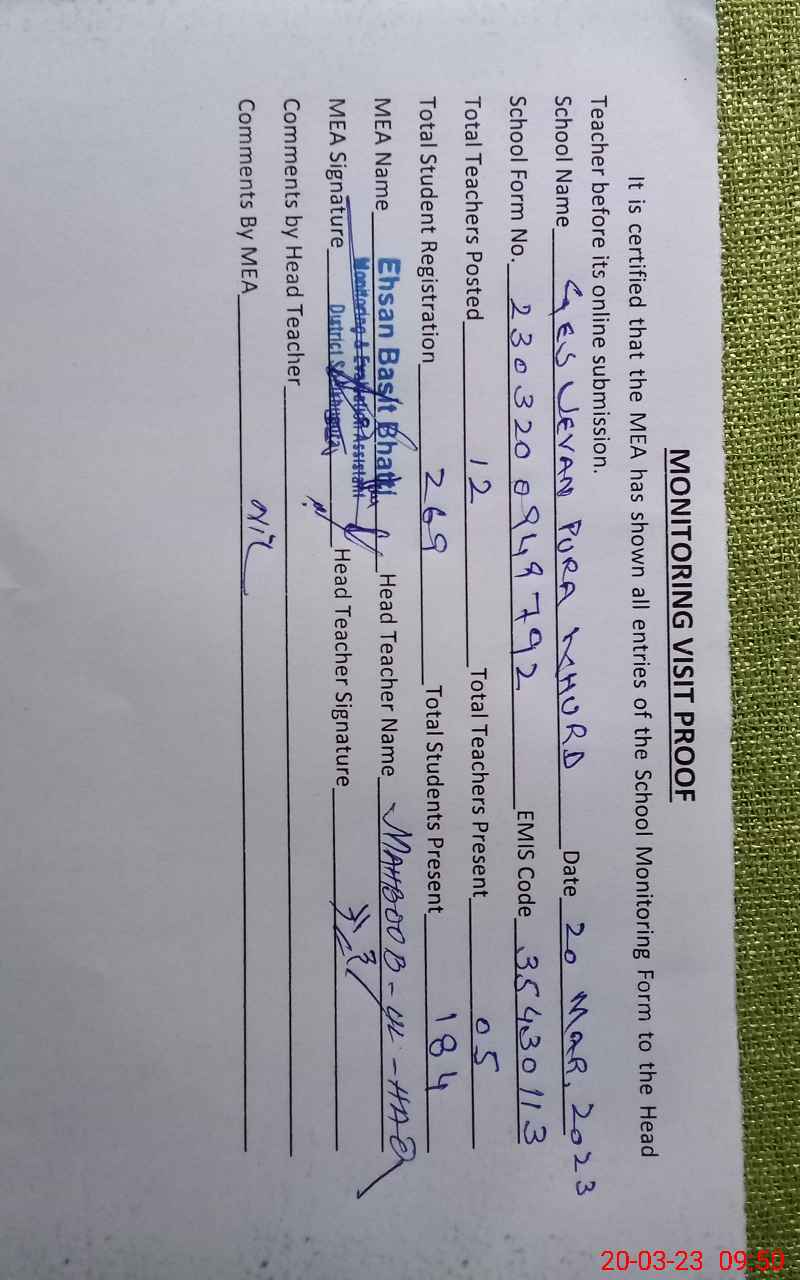 MONITORING VISIT PROOF
It is certified that the MEA has shown all entries of the School Monitoring Form to the Head
Teacher before its online submission.
School Name GES JEVAN PURA KHURD Date 20 MAR, 2023
School Form No. 230320 0949792 EMIS Code 35430113
Total Teachers Posted 12 Total Teachers Present 05
Total Student Registration 269 Total Students Present 184
MEA Name Ehsan Basit Bhatti Head Teacher Name MAHBOOB-UL-HAQ
Monitoring & Evaluation Assistant
MEA Signature District Sheikhupura Head Teacher Signature
Comments by Head Teacher
Comments By MEA Nil
20-03-23 09:50